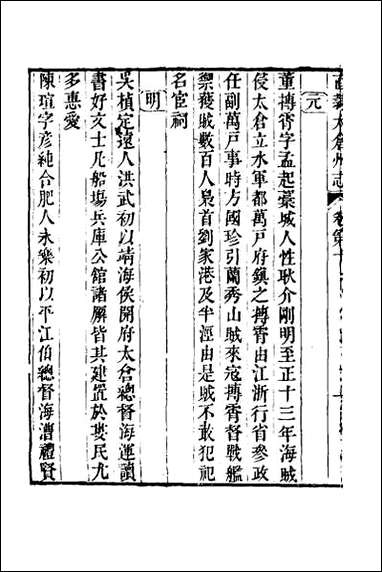 直隸太倉州志 卷第十
元
董摶霄字孟起藁城人性耿介剛明至正十三年海賊
侵太倉立水軍都萬戸府鎮之摶霄由江浙行省參政
任副萬戸事時方國珍引蘭秀山賊來寇摶霄督戰艦
禦獲賊數百人梟首劉家港及半涇由是賊不敢犯祀
名宦祠
明
吳楨定遠人洪武初以靖海侯開府太倉總督海運讀
書好文士凡船塲兵庫公館諸廨皆其建置於婁民尤
多惠愛
陳瑄字彥純合肥人永樂初以平江伯總督海漕禮賢